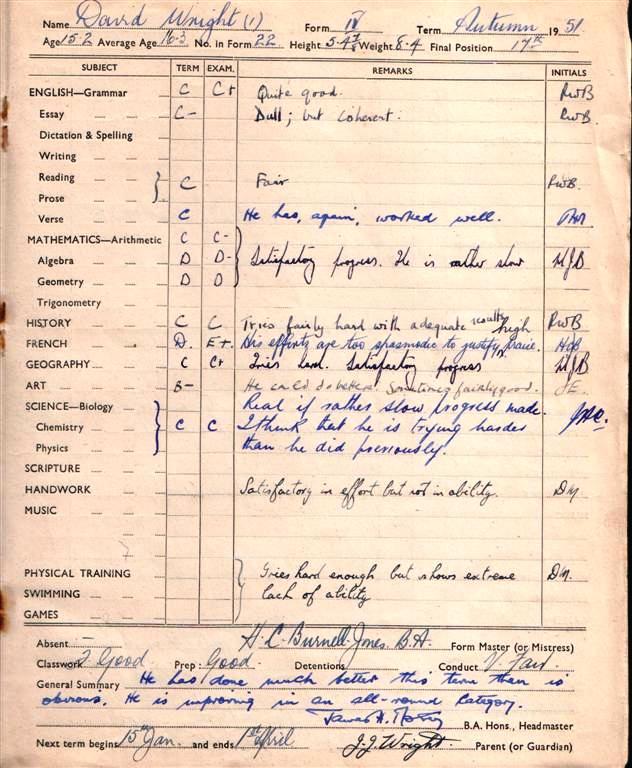 Name David Wright (1) Form IV Term Autumn 1951
Age 15·2 Average Age 16·3 No. in Form 22 Height 5·4 Weight 8·4 Final Position 17th
SUBJECT TERM EXAM. REMARKS INITIALS
ENGLISH—Grammar C C+ Quite good. RWB
Essay C- Dull; but coherent. RWB.
Dictation & Spelling
Writing
Reading
Prose C Fair RWB.
Verse C He has, again, worked well.
MATHEMATICS—Arithmetic C C-
Algebra D D- Satisfactory progress. He is rather slow HJB
Geometry D D
Trigonometry
HISTORY C C Tries fairly hard with adequate results RWB
FRENCH D. E+. His efforts are too spasmodic to justify high praise.
GEOGRAPHY C C+ Tries hard. Satisfactory progress HJB
ART B- He could do better. Sometimes fairly good.
SCIENCE—Biology Real if rather slow progress made.
Chemistry C C I think that he is trying harder
Physics than he did previously.
SCRIPTURE
HANDWORK Satisfactory in effort but not in ability. DM
MUSIC
PHYSICAL TRAINING Tries hard enough but shows extreme DM.
SWIMMING lack of ability
GAMES
Absent — H. C. Burnell-Jones. B.A. Form Master (or Mistress)
Classwork Good Prep: Good Detentions Conduct V. Fair.
General Summary He has done much better this term than is
obvious. He is improving in an all-round category.
B.A. Hons., Headmaster
Next term begins 15th Jan. and ends 1st April J.J. Wright. Parent (or Guardian)